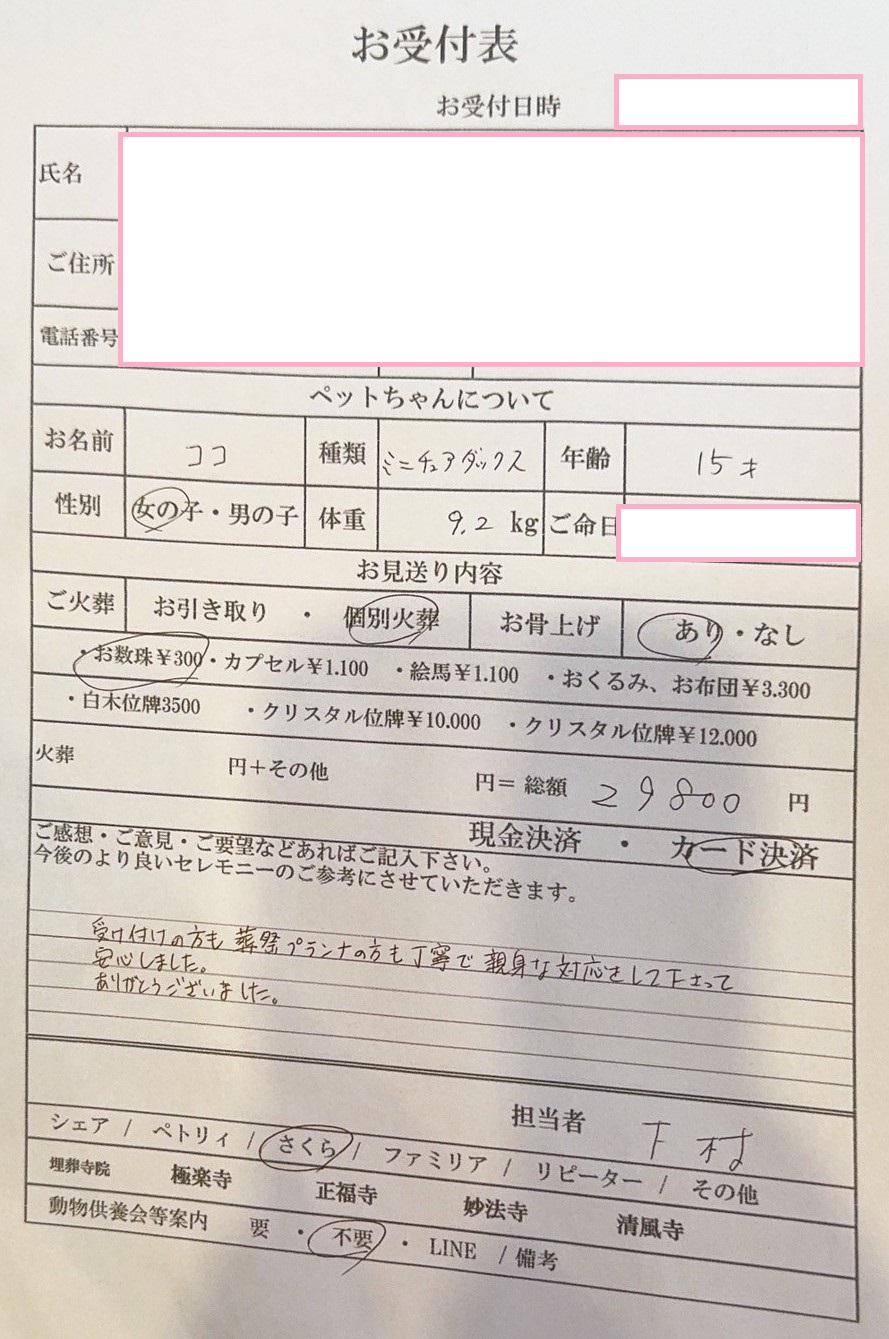 お受付表
お受付日時
氏名
ご住所
電話番号
ペットちゃんについて
お名前 ココ 種類 ミニチュアダックス 年齢 15才
性別 女の子・男の子 体重 9.2 kg ご命日
お見送り内容
ご火葬 お引き取り ・ 個別火葬 お骨上げ あり・なし
・お数珠¥300・カプセル¥1.100 ・絵馬¥1.100 ・おくるみ、お布団¥3.300
・白木位牌3500 ・クリスタル位牌¥10.000 ・クリスタル位牌¥12.000
火葬 円+その他 円= 総額 29800 円
現金決済 ・ カード決済
ご感想・ご意見・ご要望などあればご記入下さい。
今後のより良いセレモニーのご参考にさせていただきます。
受け付けの方も葬祭プランナの方も丁寧で親身な対応をして下さって
安心しました。
ありがとうございました。
担当者 下村
シェア / ペトリィ / さくら / ファミリア / リピーター / その他
埋葬寺院 極楽寺 正福寺 妙法寺 清風寺
動物供養会等案内 要 ・ 不要 ・ LINE / 備考